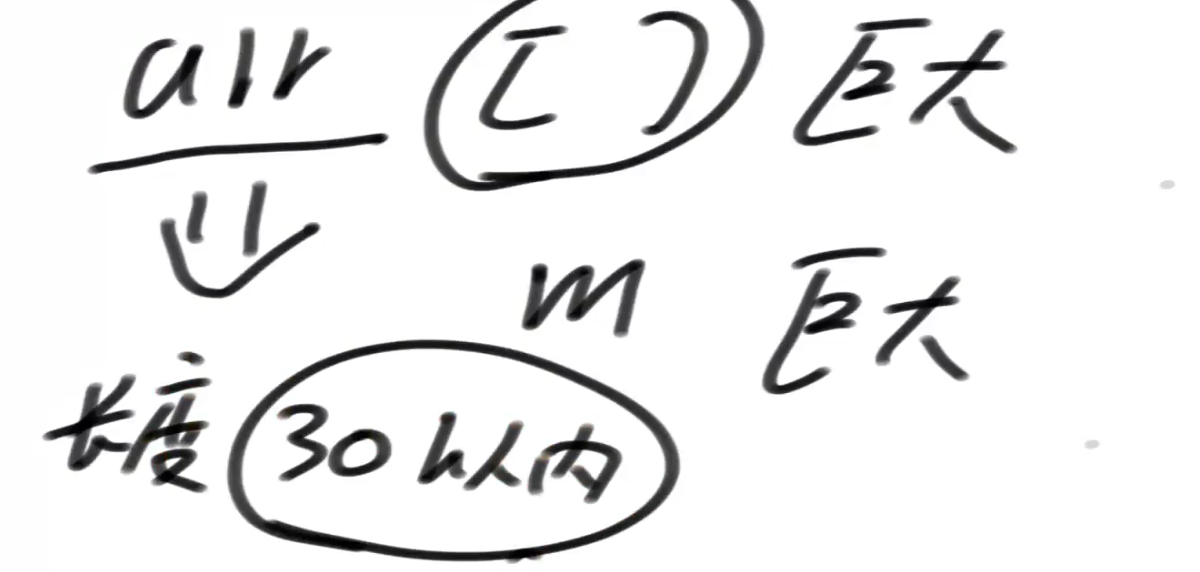 arr [ ] 巨大
m 巨大
长度 30以内